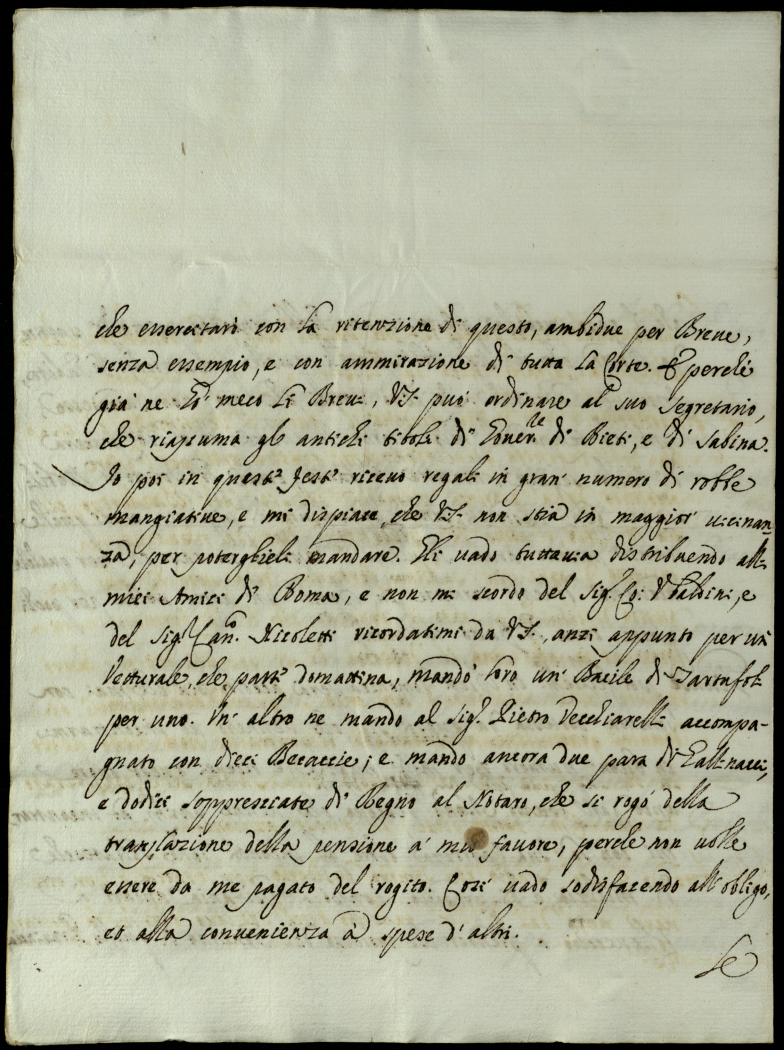 che essercitarò con la ritenzione di questo, ambidue per Breve,
senza essempio, e con ammirazione di tutta la Corte. E perche
già ne hò meco li Brevi, V.S. può ordinare al suo segretario,
che riassuma gli antichi titoli di Gover.re di Rieti, e di Sabina.
Io poi in queste feste ricevo regali in gran numero di robbe
mangiative, e mi dispiace, che V.S. non stia in maggior vicinan-
za, per poterglieli mandare. Gli vado tuttavia distribuendo alli
miei Amici di Roma, e non mi scordo del Sig.r Co: Ubaldini, e
del Sig.r Can.co Nicoletti ricordatimi da V.S., anzi appunto per un
Vetturale, che parte domattina, mando loro un Bacile di Tartufoli
per uno. Un altro ne mando al Sig.r Pietro Vecchiarelli accompa-
gnato con dieci Beccaccie; e mando ancora due para di Gallinacci,
e dodici soppressate di Regno al Notaro, che si rogò della
translazione della pensione à mio favore, perche non volle
essere da me pagato del rogito. Così vado sodisfacendo all'obligo,
et alla convenienza à spese d'altri.
Se